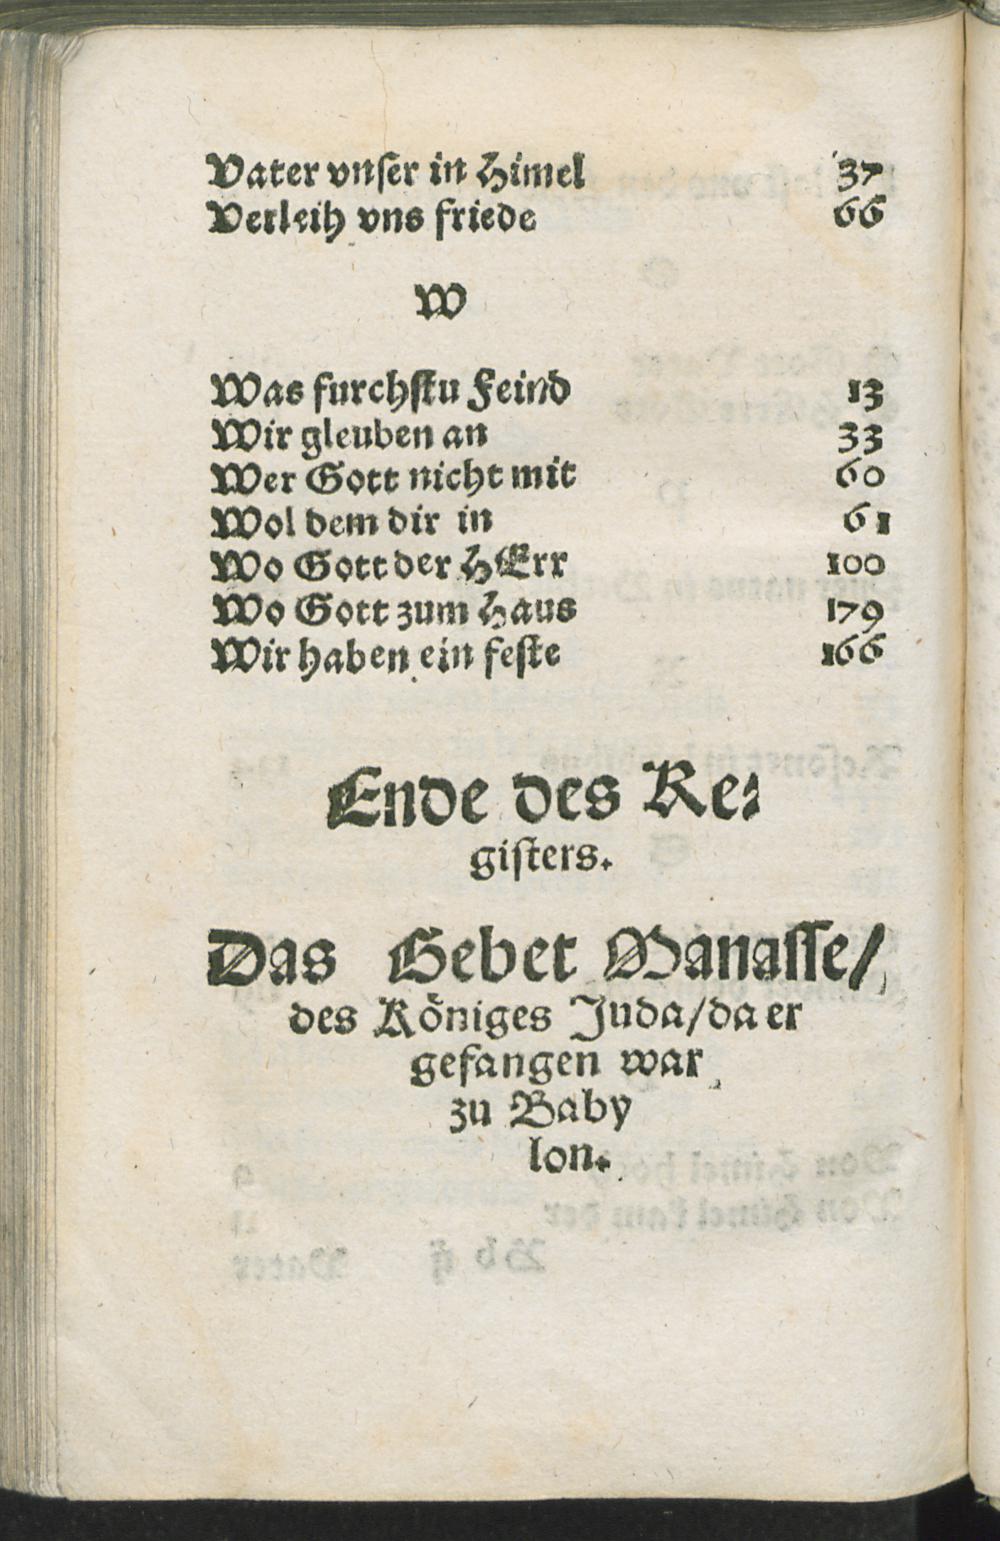 Vater vnser in Himel 37
Verleih vns friede 66
W
Was furchstu Feind 13
Wir gleuben an 33
Wer Gott nicht mit 60
Wol dem dir in 61
Wo Gott der HErr 100
Wo Gott zum Haus 179
Wir haben ein feste 166
Ende des Re⸗
gisters.
Das Gebet Manasse/
des Königes Juda/da er
gefangen war
zu Baby
lon.